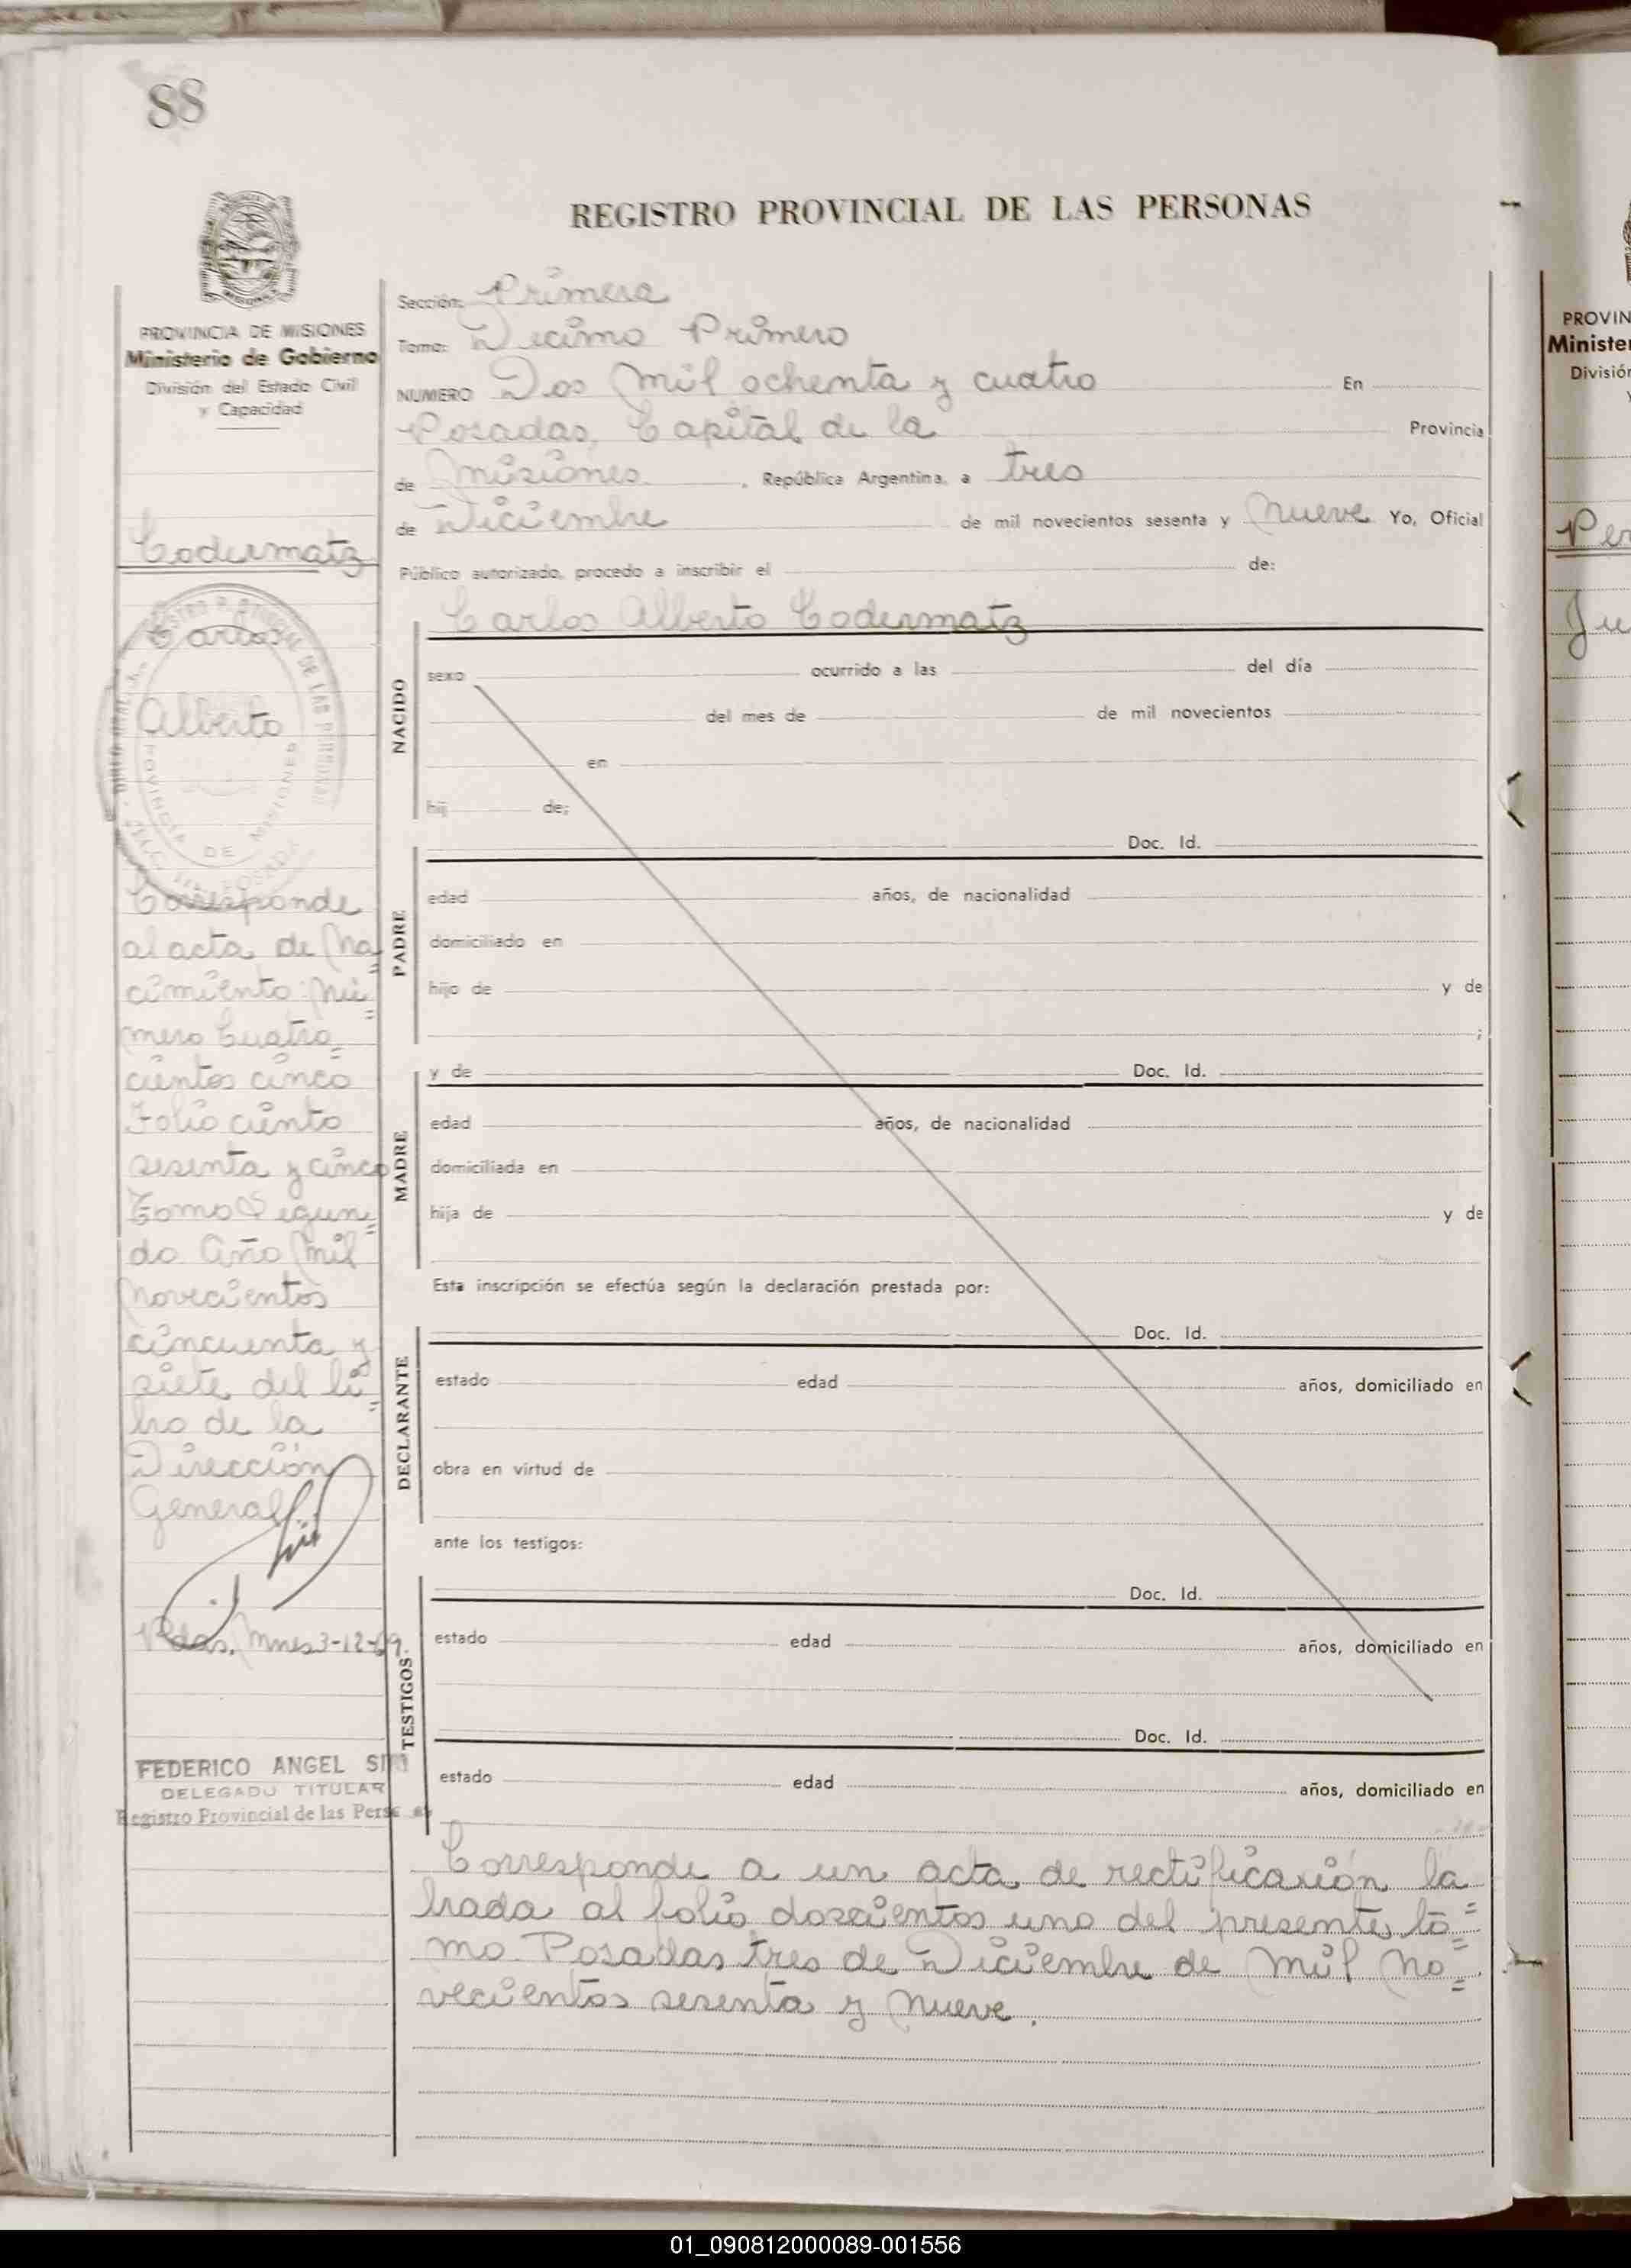 88
REGISTRO PROVINCIAL DE LAS PERSONAS
PROVINCIA DE MISIONES
Ministerio de Gobierno
División del Estado Civil
y Capacidad
Codermatz
Carlos
Alberto
Corresponde
al acta de Na=
cimiento nú=
mero Cuatro=
cientos cinco
Folio ciento
sesenta y cinco
Tomo Segun=
do Año mil
novecientos
cincuenta y
siete del li=
bro de la
Dirección
General
Pdas, Mnes 3-12-69.
FEDERICO ANGEL
DELEGADO TITULAR
Registro Provincial de las
Sección: Primera
Tomo: Decimo Primero
NUMERO Dos mil ochenta y cuatro En
Posadas, Capital de la Provincia
de Misiones, República Argentina, a tres
de Diciembre de mil novecientos sesenta y nueve Yo, Oficial
Público autorizado, procedo a inscribir el de:
Carlos Alberto Codermatz
NACIDO
sexo ocurrido a las del día
del mes de de mil novecientos
en
hij de;
Doc. Id.
PADRE
edad años, de nacionalidad
domiciliado en
hijo de y de
;
y de Doc. Id.
MADRE
edad años, de nacionalidad
domiciliada en
hija de y de
Esta inscripción se efectúa según la declaración prestada por:
Doc. Id.
DECLARANTE
estado edad años, domiciliado en
obra en virtud de
ante los testigos:
Doc. Id.
TESTIGOS
estado edad años, domiciliado en
Doc. Id.
estado edad años, domiciliado en
Corresponde a un acta de rectificación la
brada al folio doscientos uno del presente to=
mo. Posadas tres de Diciembre de mil no=
vecientos sesenta y nueve.
PROVIN
Ministe
Divisió
Per
Ju
01_090812000089-001556